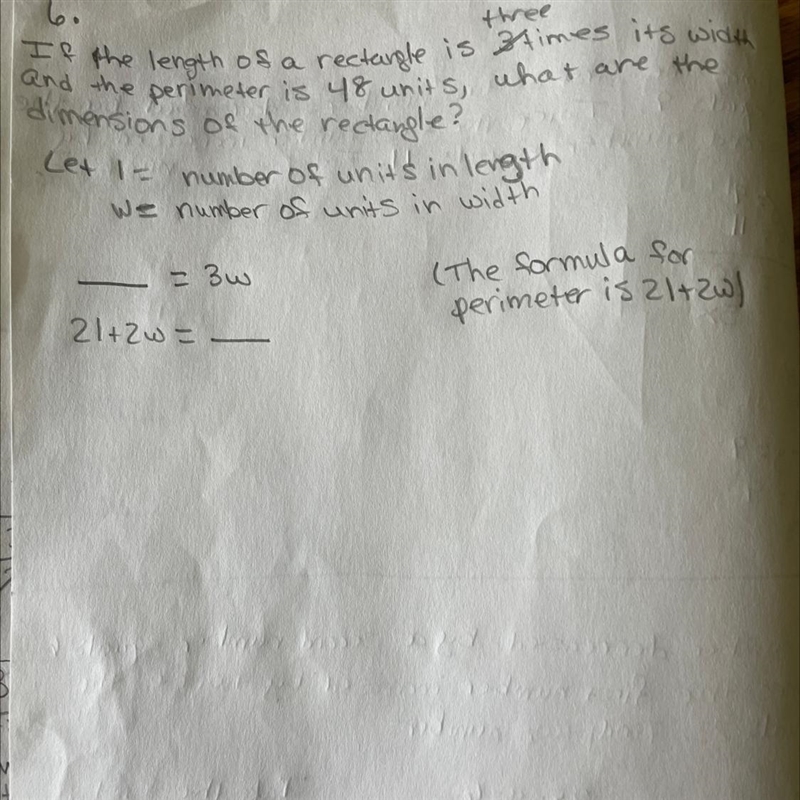 6.
three
If the length of a rectangle is times its width
and the perimeter is 48 units, what are the
dimensions of the rectangle?
Let l = number of units in length
w = number of units in width
___ = 3w
(The formula for
perimeter is 2l+2w)
2l+2w = ___